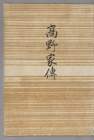 高野家傳